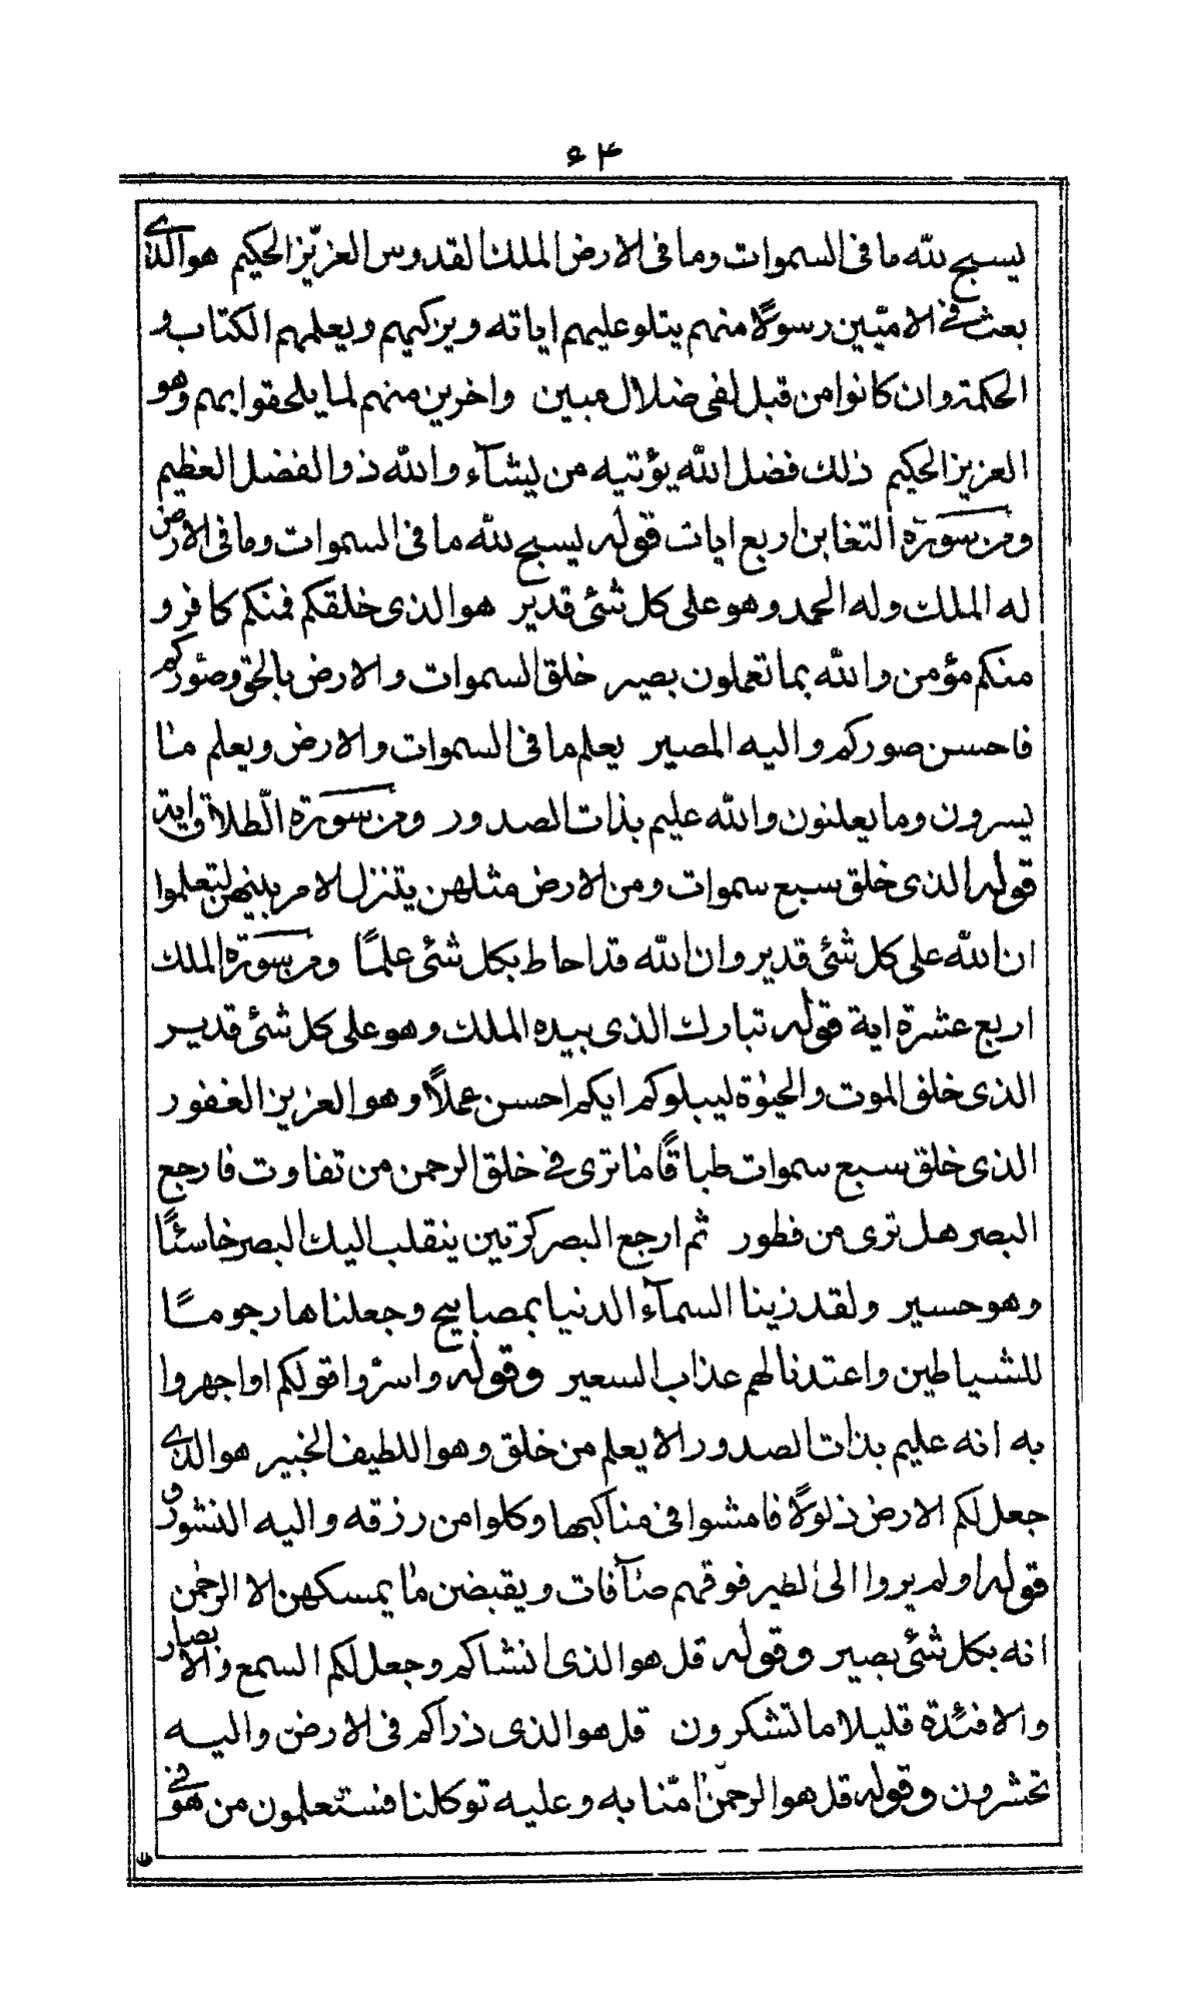 ۶۴
يسبح لله ما فى السموات وما فى الارض الملك القدوس العزيز الحكيم هو الذى
بعث فى الاميّين رسولًا منهم يتلو عليهم اياته ويزكيهم ويعلمهم الكتاب و
الحكمة وان كانوا من قبل لفى ضلال مبين واخرين منهم لما يلحقوا بهم وهو
العزيز الحكيم ذلك فضل الله يؤتيه من يشآء والله ذو الفضل العظيم
ومن سورة التغابن اربع ايات قوله يسبح لله ما فى السموات وما فى الارض
له الملك وله الحمد وهو على كل شئ قدير هو الذى خلقكم فمنكم كافر و
منكم مؤمن والله بما تعملون بصير خلق السموات والارض بالحق وصوركم
فاحسن صوركم واليه المصير يعلم ما فى السموات والارض ويعلم ما
يسرون وما يعلنون والله عليم بذات الصدور ومن سورة الطلاق اية
قوله الذى خلق سبع سموات ومن الارض مثلهن يتنزل الامر بينهن لتعلموا
ان الله على كل شئ قدير وان الله قد احاط بكل شئ علمًا ومن سورة الملك
اربع عشرة اية قوله تبارك الذى بيده الملك وهو على كل شئ قدير
الذى خلق الموت والحيوة ليبلوكم ايكم احسن عملًا وهو العزيز الغفور
الذى خلق سبع سموات طباقًا ما ترى فى خلق الرحمن من تفاوت فارجع
البصر هل ترى من فطور ثم ارجع البصر كرتين ينقلب اليك البصر خاسئًا
وهو حسير ولقد زينا السمآء الدنيا بمصابيح وجعلناها رجومًا
للشياطين واعتدنا لهم عذاب السعير وقوله واسرّوا قولكم او اجهروا
به انه عليم بذات الصدور الا يعلم من خلق وهو اللطيف الخبير هو الذى
جعل لكم الارض ذلولًا فامشوا فى مناكبها وكلوا من رزقه واليه النشور و
قوله اولم يروا الى الطير فوقهم صآفات ويقبضن ما يمسكهن الا الرحمن
انه بكل شئ بصير وقوله قل هو الذى انشاكم وجعل لكم السمع والابصار
والافئدة قليلا ما تشكرون قل هو الذى ذراكم فى الارض واليه
تحشرون وقوله قل هو الرحمن امنّا به وعليه توكلنا فستعلمون من هو فى